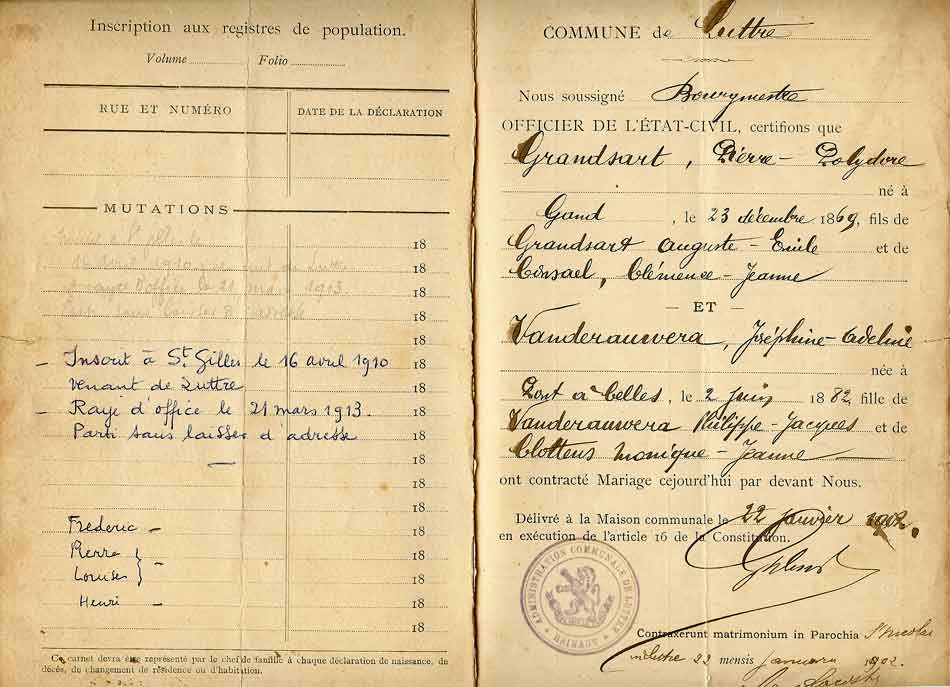 Inscription aux registres de population.
Volume Folio
RUE ET NUMÉRO DATE DE LA DÉCLARATION
MUTATIONS
18
18
avril 1910 Luttre 18
rayé d'office le 21 mars 1913. 18
Parti sans laisser d'adresse 18
18
– Inscrit à St Gilles le 16 avril 1910 18
venant de Luttre 18
– Rayé d'office le 21 mars 1913. 18
Parti sans laisser d'adresse 18
18
18
18
Frederic – 18
Pierre } – 18
Louise 18
Henri – 18
18
Ce carnet devra être représenté par le chef de famille à chaque déclaration de naissance, de
décès, de changement de résidence ou d'habitation.
COMMUNE de Luttre
Nous soussigné Bourgmestre
OFFICIER DE L'ÉTAT-CIVIL, certifions que
Grandsart, Pierre-Polydore
né à
Gand, le 23 décembre 1869, fils de
Grandsart Auguste-Emile et de
Consael, Clémence-Jeanne
— ET —
Vanderauwera, Joséphine-Adeline
née à
Pont à Celles, le 2 juin 1882, fille de
Vanderauwera Philippe-Jacques et de
Clottens Monique-Jeanne
ont contracté Mariage cejourd'hui par devant Nous.
Délivré à la Maison communale le 22 janvier 1902.
en exécution de l'article 16 de la Constitution.
ADMINISTRATION COMMUNALE DE LUTTRE
HAINAUT
Contraxerunt matrimonium in Parochia St Nicolai
in Luttre 22 mensis januarii 1902.